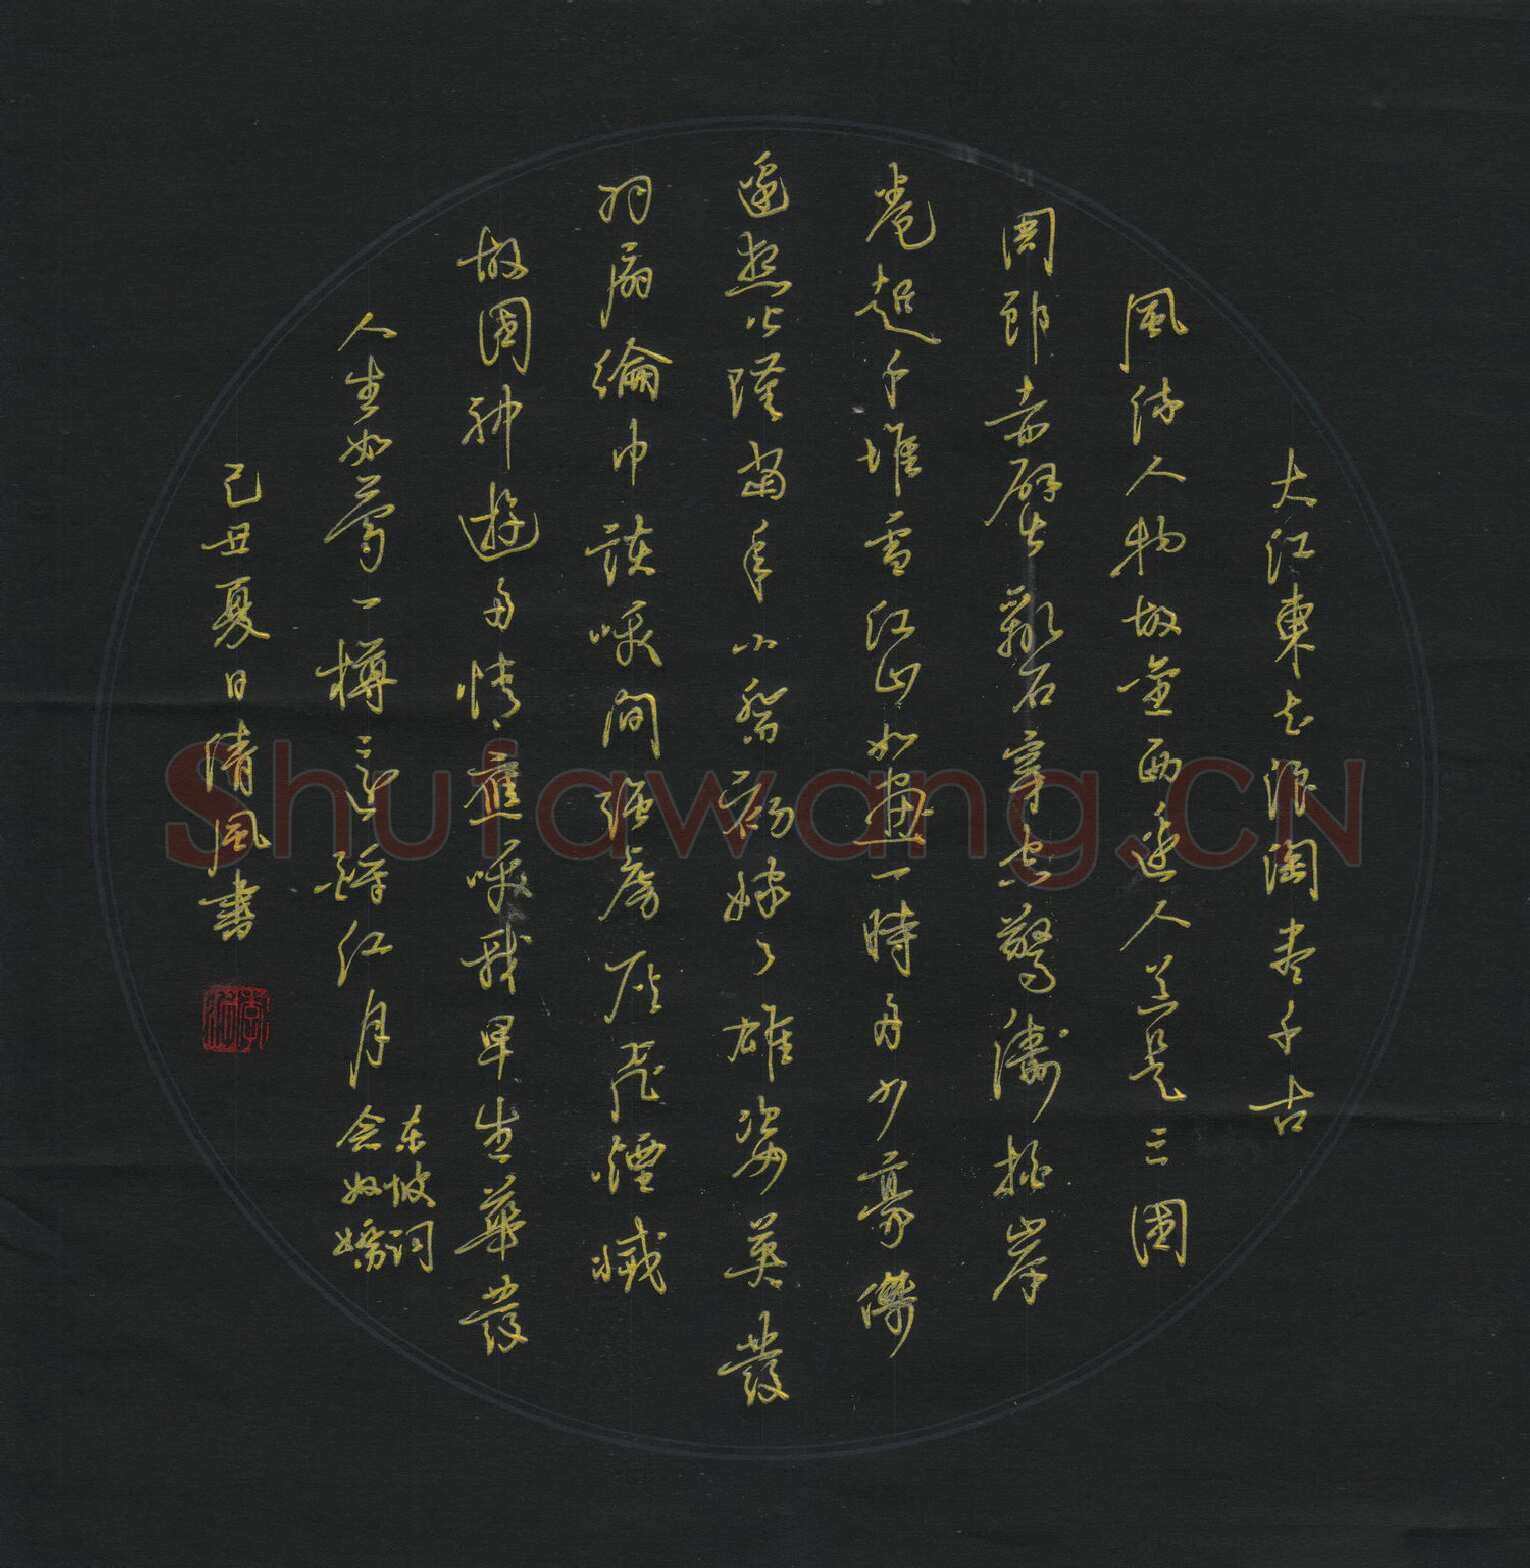 大江東去浪淘盡千古
風流人物故壘西邊人道是三國
周郎赤壁亂石穿空驚濤拍岸
卷起千堆雪江山如畫一時多少豪傑
遙想公瑾當年小喬初嫁了雄姿英發
羽扇綸巾談笑間強虜灰飛煙滅
故國神遊多情應笑我早生華髮
人生如夢一樽還酹江月
东坡词
念奴嬌
己丑夏日清風書
Shufawang.CN